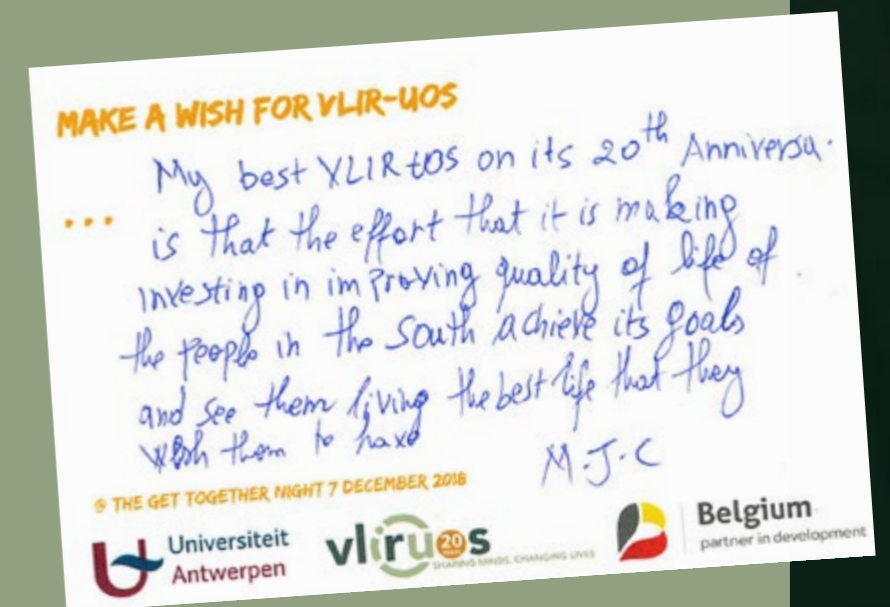 MAKE A WISH FOR VLIR-UOS
My best VLIR UOS on its 20th Anniversa.
... is that the effort that it is making
investing in improving quality of life of
the people in the South achieve its goals
and see them living the best life that they
wish them to have
M.J.C
@ THE GET TOGETHER NIGHT 7 DECEMBER 2018
Universiteit
Antwerpen
vliruos
20
YEARS
SHARING MINDS, CHANGING LIVES
Belgium
partner in development